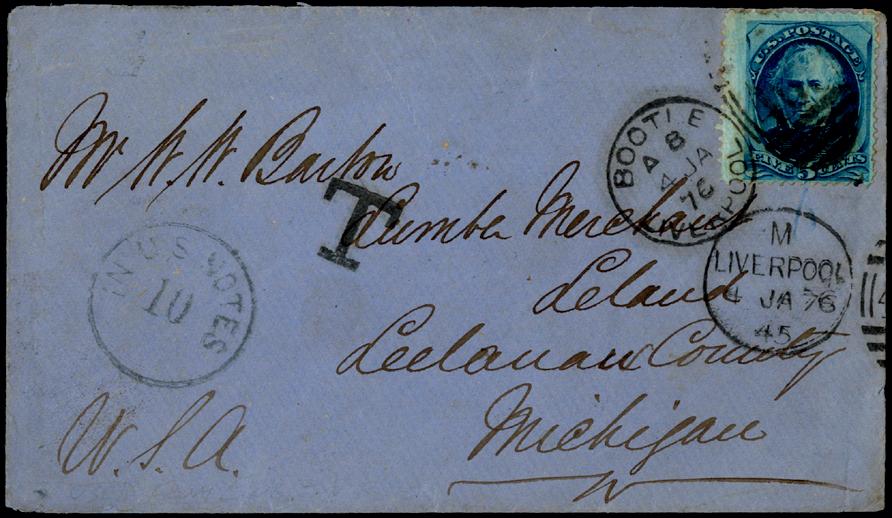 U.S. POSTAGE
FIVE 5 CENTS
BOOTLE
A 8
JA
4
76
LIVERPOOL
Mr W. W. Barton
T
Lumber Merchant
M
LIVERPOOL
4 JA 76
45
Leland
IN U.S. NOTES
10
Leelanaw County
U.S.A.
Michigan
4